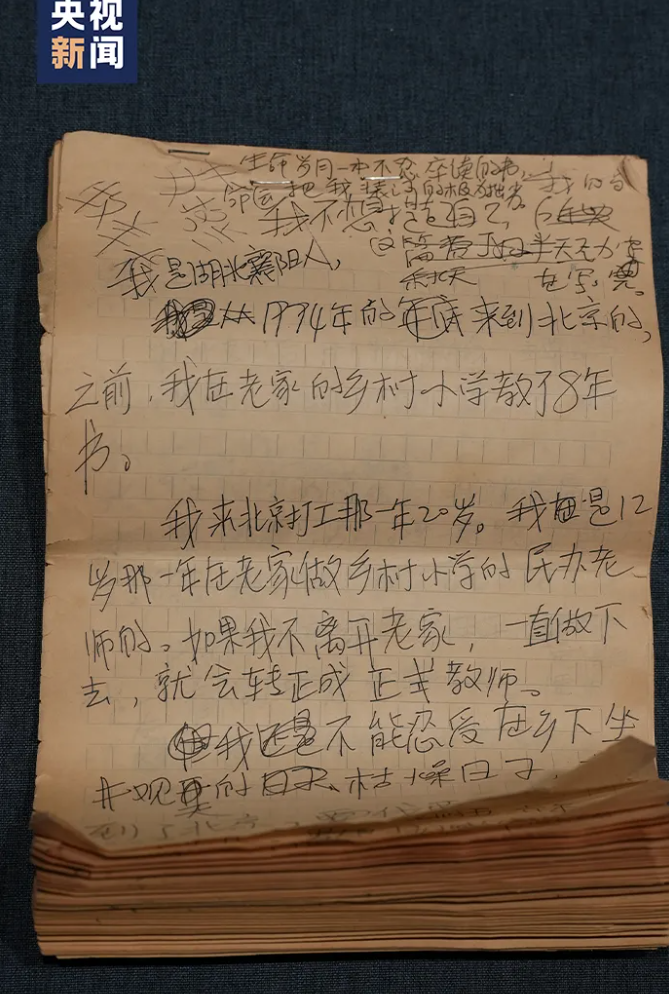 央视
新闻
生命岁月一本不忍卒读的书,
命运把我装订的极为拙劣。
我不想提这自己,
我是湖北襄阳人,
从1994年的年底来到北京的,
之前,我在老家的乡村小学教了8年
书。
我来北京打工那一年20岁。我是12
岁那一年在老家做乡村小学的民办老
师的。如果我不离开老家,一直做下
去,就会转正成正式教师。
我不能忍受在乡下坐
井观的枯燥日子,
到了北京